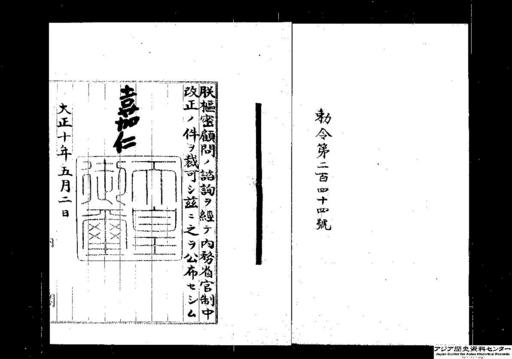 勅令第二百四十四號
朕樞密顧問ノ諮詢ヲ經テ內務省官制中
改正ノ件ヲ裁可シ茲ニ之ヲ公布セシム
嘉仁
天皇
御璽
大正十年五月二日
アジア歴史資料センター
Japan Center for Asian Historical Records